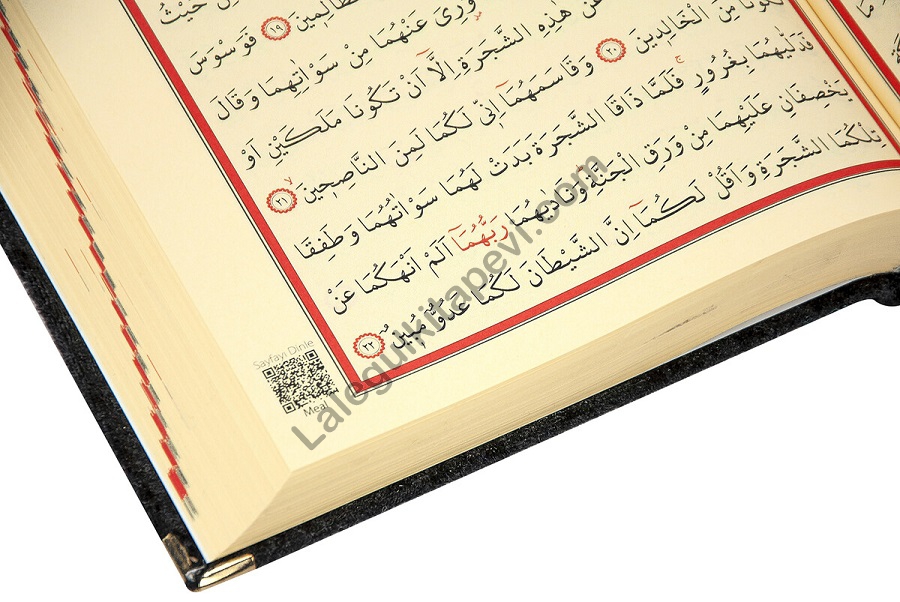 حَيْثُ
الظَّالِمِينَ ١٩ فَوَسْوَسَ
وُرِيَ عَنْهُمَا مِنْ سَوْاٰتِهِمَا وَقَالَ
عَنْ هٰذِهِ الشَّجَرَةِ اِلَّٓا اَنْ تَكُونَا مَلَكَيْنِ اَوْ
تَكُونَا مِنَ الْخَالِدِينَ ٢٠ وَقَاسَمَهُمَٓا اِنّ۪ي لَكُمَا لَمِنَ النَّاصِح۪ينَ ٢١
فَدَلّٰيهُمَا بِغُرُورٍ فَلَمَّا ذَاقَا الشَّجَرَةَ بَدَتْ لَهُمَا سَوْاٰتُهُمَا وَطَفِقَا
يَخْصِفَانِ عَلَيْهِمَا مِنْ وَرَقِ الْجَنَّةِ وَنَادٰيهُمَا رَبُّهُمَٓا اَلَمْ اَنْهَكُمَا عَنْ
تِلْكُمَا الشَّجَرَةِ وَاَقُلْ لَكُمَٓا اِنَّ الشَّيْطَانَ لَكُمَا عَدُوٌّ مُب۪ينٌ ٢٢
Sayfayı Dinle
Meal
Lalegulkitapevi.com